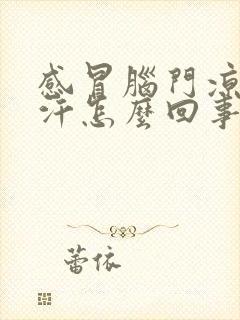 感冒腦門涼
汗怎麼回事
蕾依